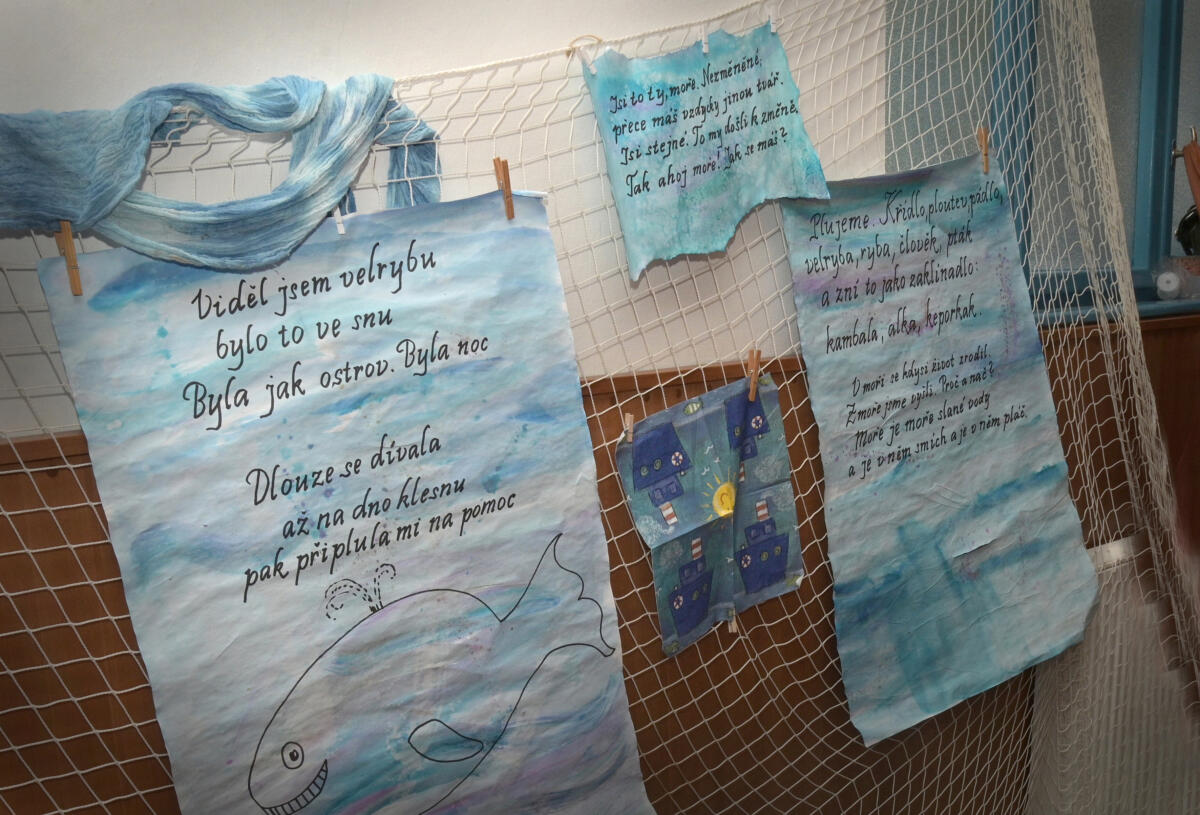 Viděl jsem velrybu
bylo to ve snu
Byla jak ostrov. Byla noc
Dlouze se dívala
až na dno klesnu
pak připlula mi na pomoc
Jsi to ty, moře. Nezměněné,
přece máš vzdycky jinou tvář.
Jsi stejné. To my došli k změně.
Tak ahoj moře! Jak se máš?
Plujeme. Křídlo, ploutev, pádlo,
velryba, ryba, člověk, pták
a zní to jako zaklínadlo:
kambala, alka, keporkak.
V moři se kdysi život zrodil.
Z moře jsme vyšli. Proč a nač?
Moře je moře slané vody
a je v něm smích a je v něm pláč.